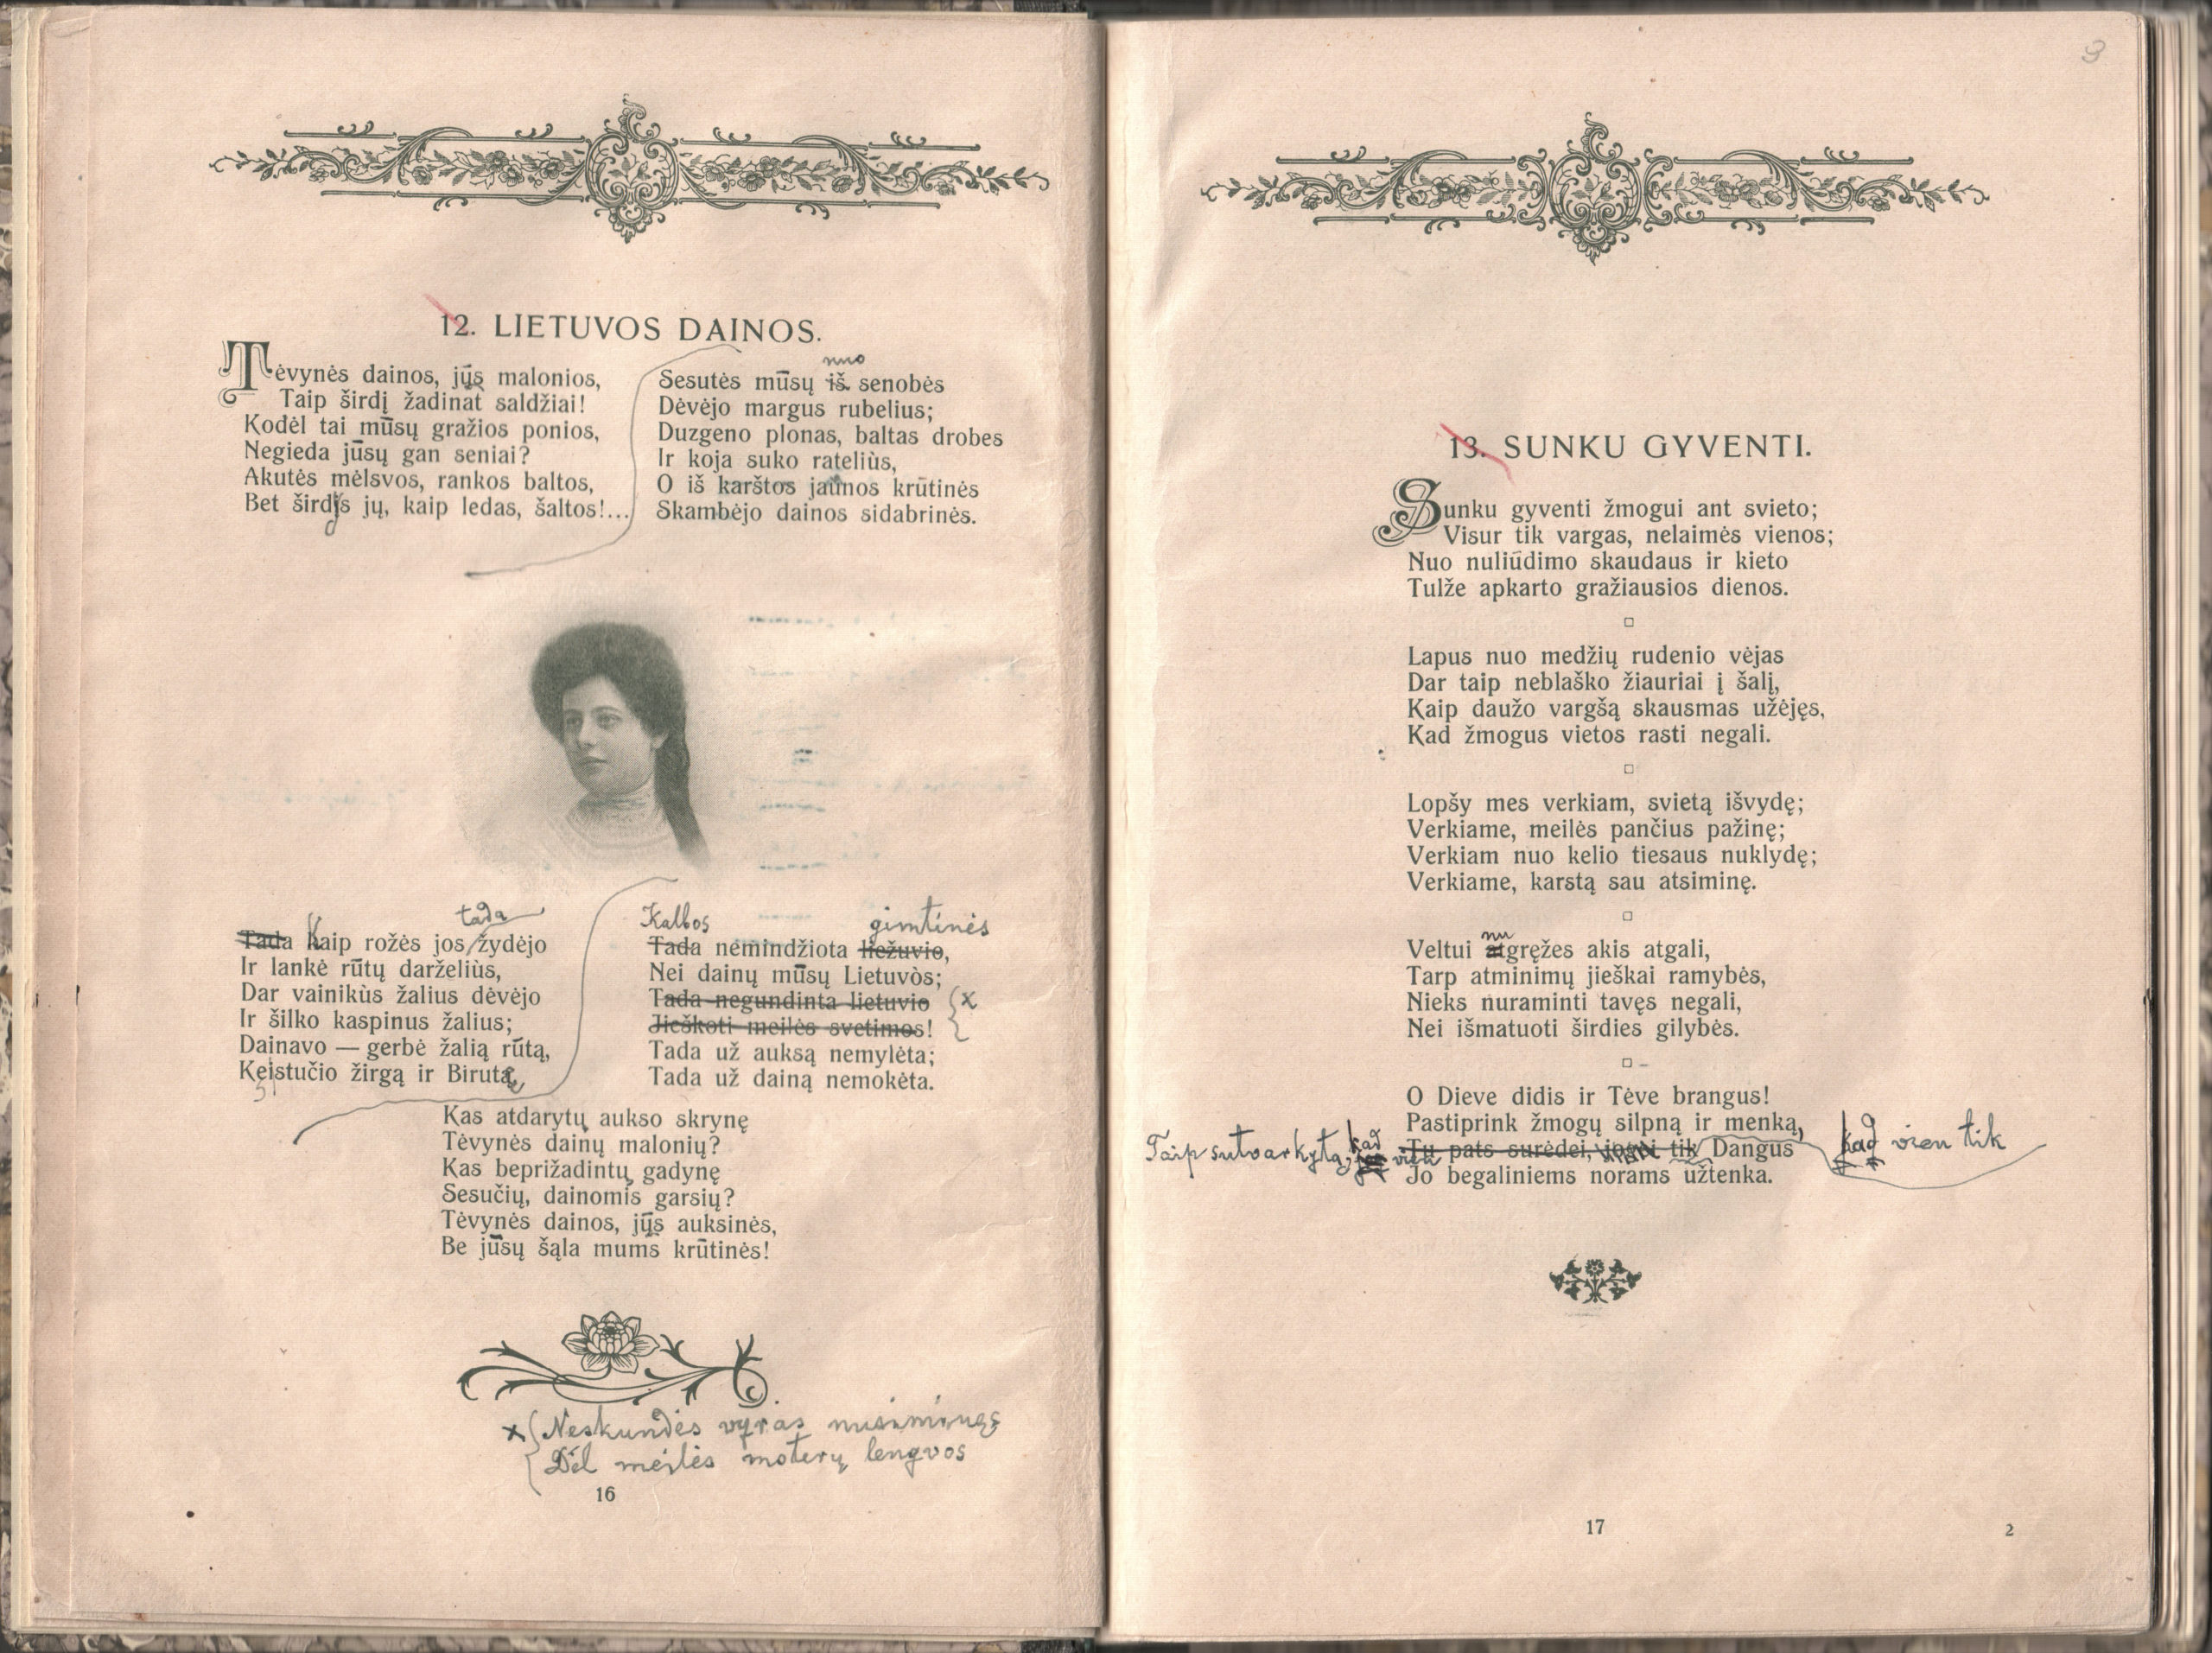 12. LIETUVOS DAINOS.
Tėvynės dainos, jųs malonios,
Taip širdį žadinat saldžiai!
Kodėl tai mūsų gražios ponios,
Negieda jūsų gan seniai?
Akutės mėlsvos, rankos baltos,
Bet širdys jų, kaip ledas, šaltos!...
nuo
Sesutės mūsų iš senobės
Dėvėjo margus rubelius;
Duzgeno plonas, baltas drobes
Ir koja suko rateliùs,
O iš karštos jaunos krūtinės
Skambėjo dainos sidabrinės.
tada
Tada Kaip rožės jos žydėjo
Ir lankė rūtų darželiùs,
Dar vainikùs žalius dėvėjo
Ir šilko kaspinus žalius;
Dainavo — gerbė žalią rūtą,
Keistučio žirgą ir Birutę
Kalbos gimtinės
Tada nemindžiota liežuvio,
Nei dainų mūsų Lietuvòs;
Tada negundinta lietuvio {x
Jieškoti meilės svetimos!
Tada už auksą nemylėta;
Tada už dainą nemokėta.
Kas atdarytų aukso skrynę
Tėvynės dainų malonių?
Kas beprižadintų gadynę
Sesučių, dainomis garsių?
Tėvynės dainos, jųs auksinės,
Be jūsų šąla mums krūtinės!
x{Neskundės vyras nusiminęs
Dėl meilės moterų lengvos
16
3
13. SUNKU GYVENTI.
Sunku gyventi žmogui ant svieto;
Visur tik vargas, nelaimės vienos;
Nuo nuliūdimo skaudaus ir kieto
Tulže apkarto gražiausios dienos.
Lapus nuo medžių rudenio vėjas
Dar taip neblaško žiauriai į šalį,
Kaip daužo vargšą skausmas užėjęs,
Kad žmogus vietos rasti negali.
Lopšy mes verkiam, svietą išvydę;
Verkiame, meilės pančius pažinę;
Verkiam nuo kelio tiesaus nuklydę;
Verkiame, karstą sau atsiminę.
nu
Veltui atgręžes akis atgali,
Tarp atminimų jieškai ramybės,
Nieks nuraminti tavęs negali,
Nei išmatuoti širdies gilybės.
O Dieve didis ir Tėve brangus!
Pastiprink žmogų silpną ir menką,
Taip sutvarkytą, kad Tu pats surėdei, jogei tik Dangus kad vien tik
Jo begaliniems norams užtenka.
17
2